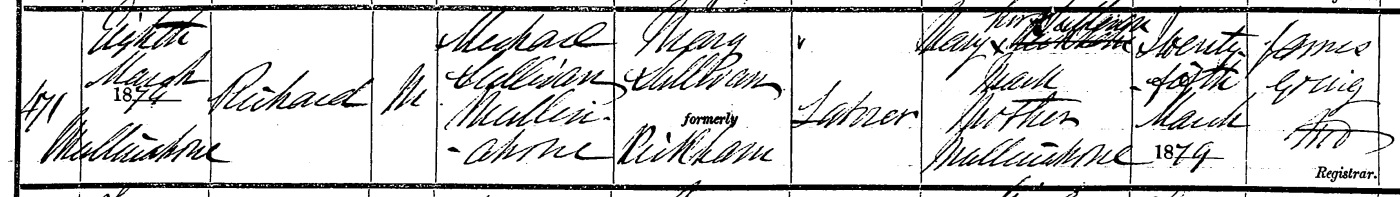 471
Eighth
March
1879
Mullinahone
Richard
M
Michael
Sullivan
Mullin-
-ahone
Mary
Sullivan
formerly
Kickham
Laborer
her Sullivan
Mary X
Mark
Mother
Mullinahone
Twenty
-fifth
March
1879
James
Going
Registrar.